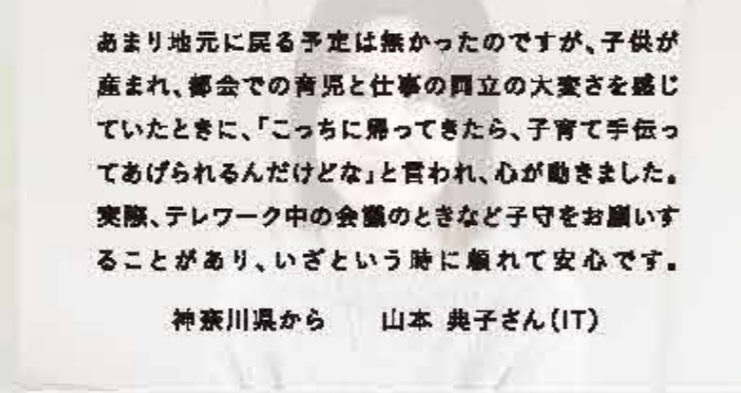 あまり地元に戻る予定は無かったのですが、子供が
産まれ、都会での育児と仕事の両立の大変さを感じ
ていたときに、「こっちに帰ってきたら、子育て手伝っ
てあげられるんだけどな」と言われ、心が動きました。
実際、テレワーク中の会議のときなど子守をお願いす
ることがあり、いざという時に頼れて安心です。
神奈川県から　　山本 典子さん(IT)